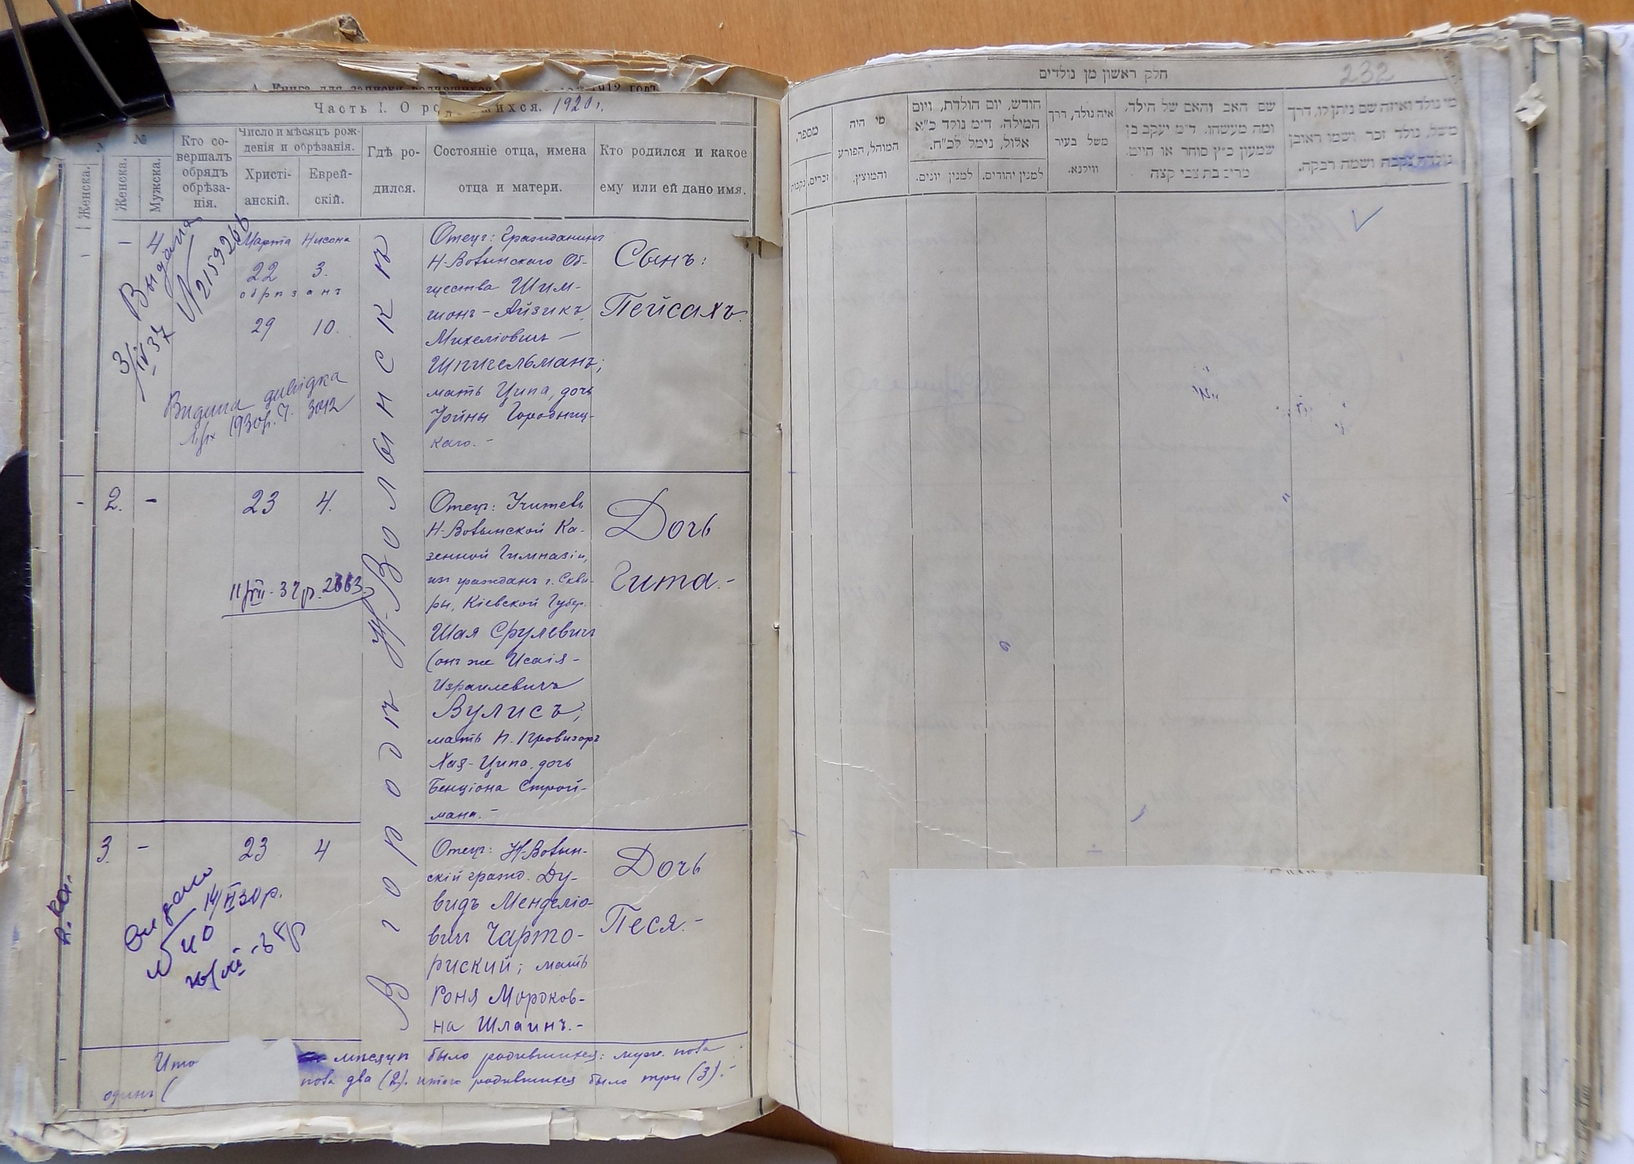 Часть I. О родившихся. 1920 г.
Женска.
№
Женска.
Мужска.
Кто со-
вершалъ
обрядъ
обрѣза-
нія.
Число и мѣсяцъ рож-
денія и обрѣзанія.
Христі-
анскій.
Еврей-
скій.
Гдѣ ро-
дился.
Состояніе отца, имена
отца и матери.
Кто родился и какое
ему или ей дано имя.
В городѣ Н-Волынскѣ
- 4
Марта Нисона
22 3.
обрѣзанъ
29 10.
Отецъ: Гражданинъ
Н-Волынскаго Об-
щества Шим-
шонъ-Айзикъ
Михеліовичъ
Шписельманъ;
мать Ципа, дочь
Городниц-
каго.-
Сынъ:
Пейсахъ.
Выдана
№ 2159266
3/IV 37
Видана довідка
3042
- 2. - 23 4.
11/VII-37р. 2663
Отецъ: Учитель
Н-Волынской Ка-
зенной Гимназіи,
изъ гражданъ г.Скви-
ры, Кіевской Губер.
Шая Срулевич
(онъ же Исаія-
Израилевичъ
Вулисъ;
мать П. Провизоръ
Хая-Ципа, дочь
Бенціона Строй-
мана.-
Дочь
Гита.-
3. - 23 4
14/II 30р.
№ 40
Отецъ: Н-Волын-
скій гражд. Ду-
видъ Менделіо-
вич Чарто-
риский; мать
Роня Мордков-
на Шлаинъ.-
Дочь
Песя.-
Ито
мѣсяцѣ было родившихся: муж. пола
одинъ (
пола два (2). итого родившихся было три (3).-
חלק ראשון מן נולדים
232
מספר.
זכרים. נקבות
מי היה
המוהל, הפורע
והמוצץ.
חודש, יום הולדת, ויום
המילה. ד״מ נולד כ״א
אלול, נימל לכ״ח.
למנין יונים.
למנין יהודים.
איה נולד, דרך
משל בעיר
ווילנא.
שם האב והאם של הילד.
ומה מעשהו. ד״מ יעקב בן
שמעון כ״ץ סוחר או חייט.
מרים בת צבי קצה
מי נולד ואיזה שם ניתן לו, דרך
משל, נולד זכר ושמו ראובן
נולדה נקבה ושמה רבקה.